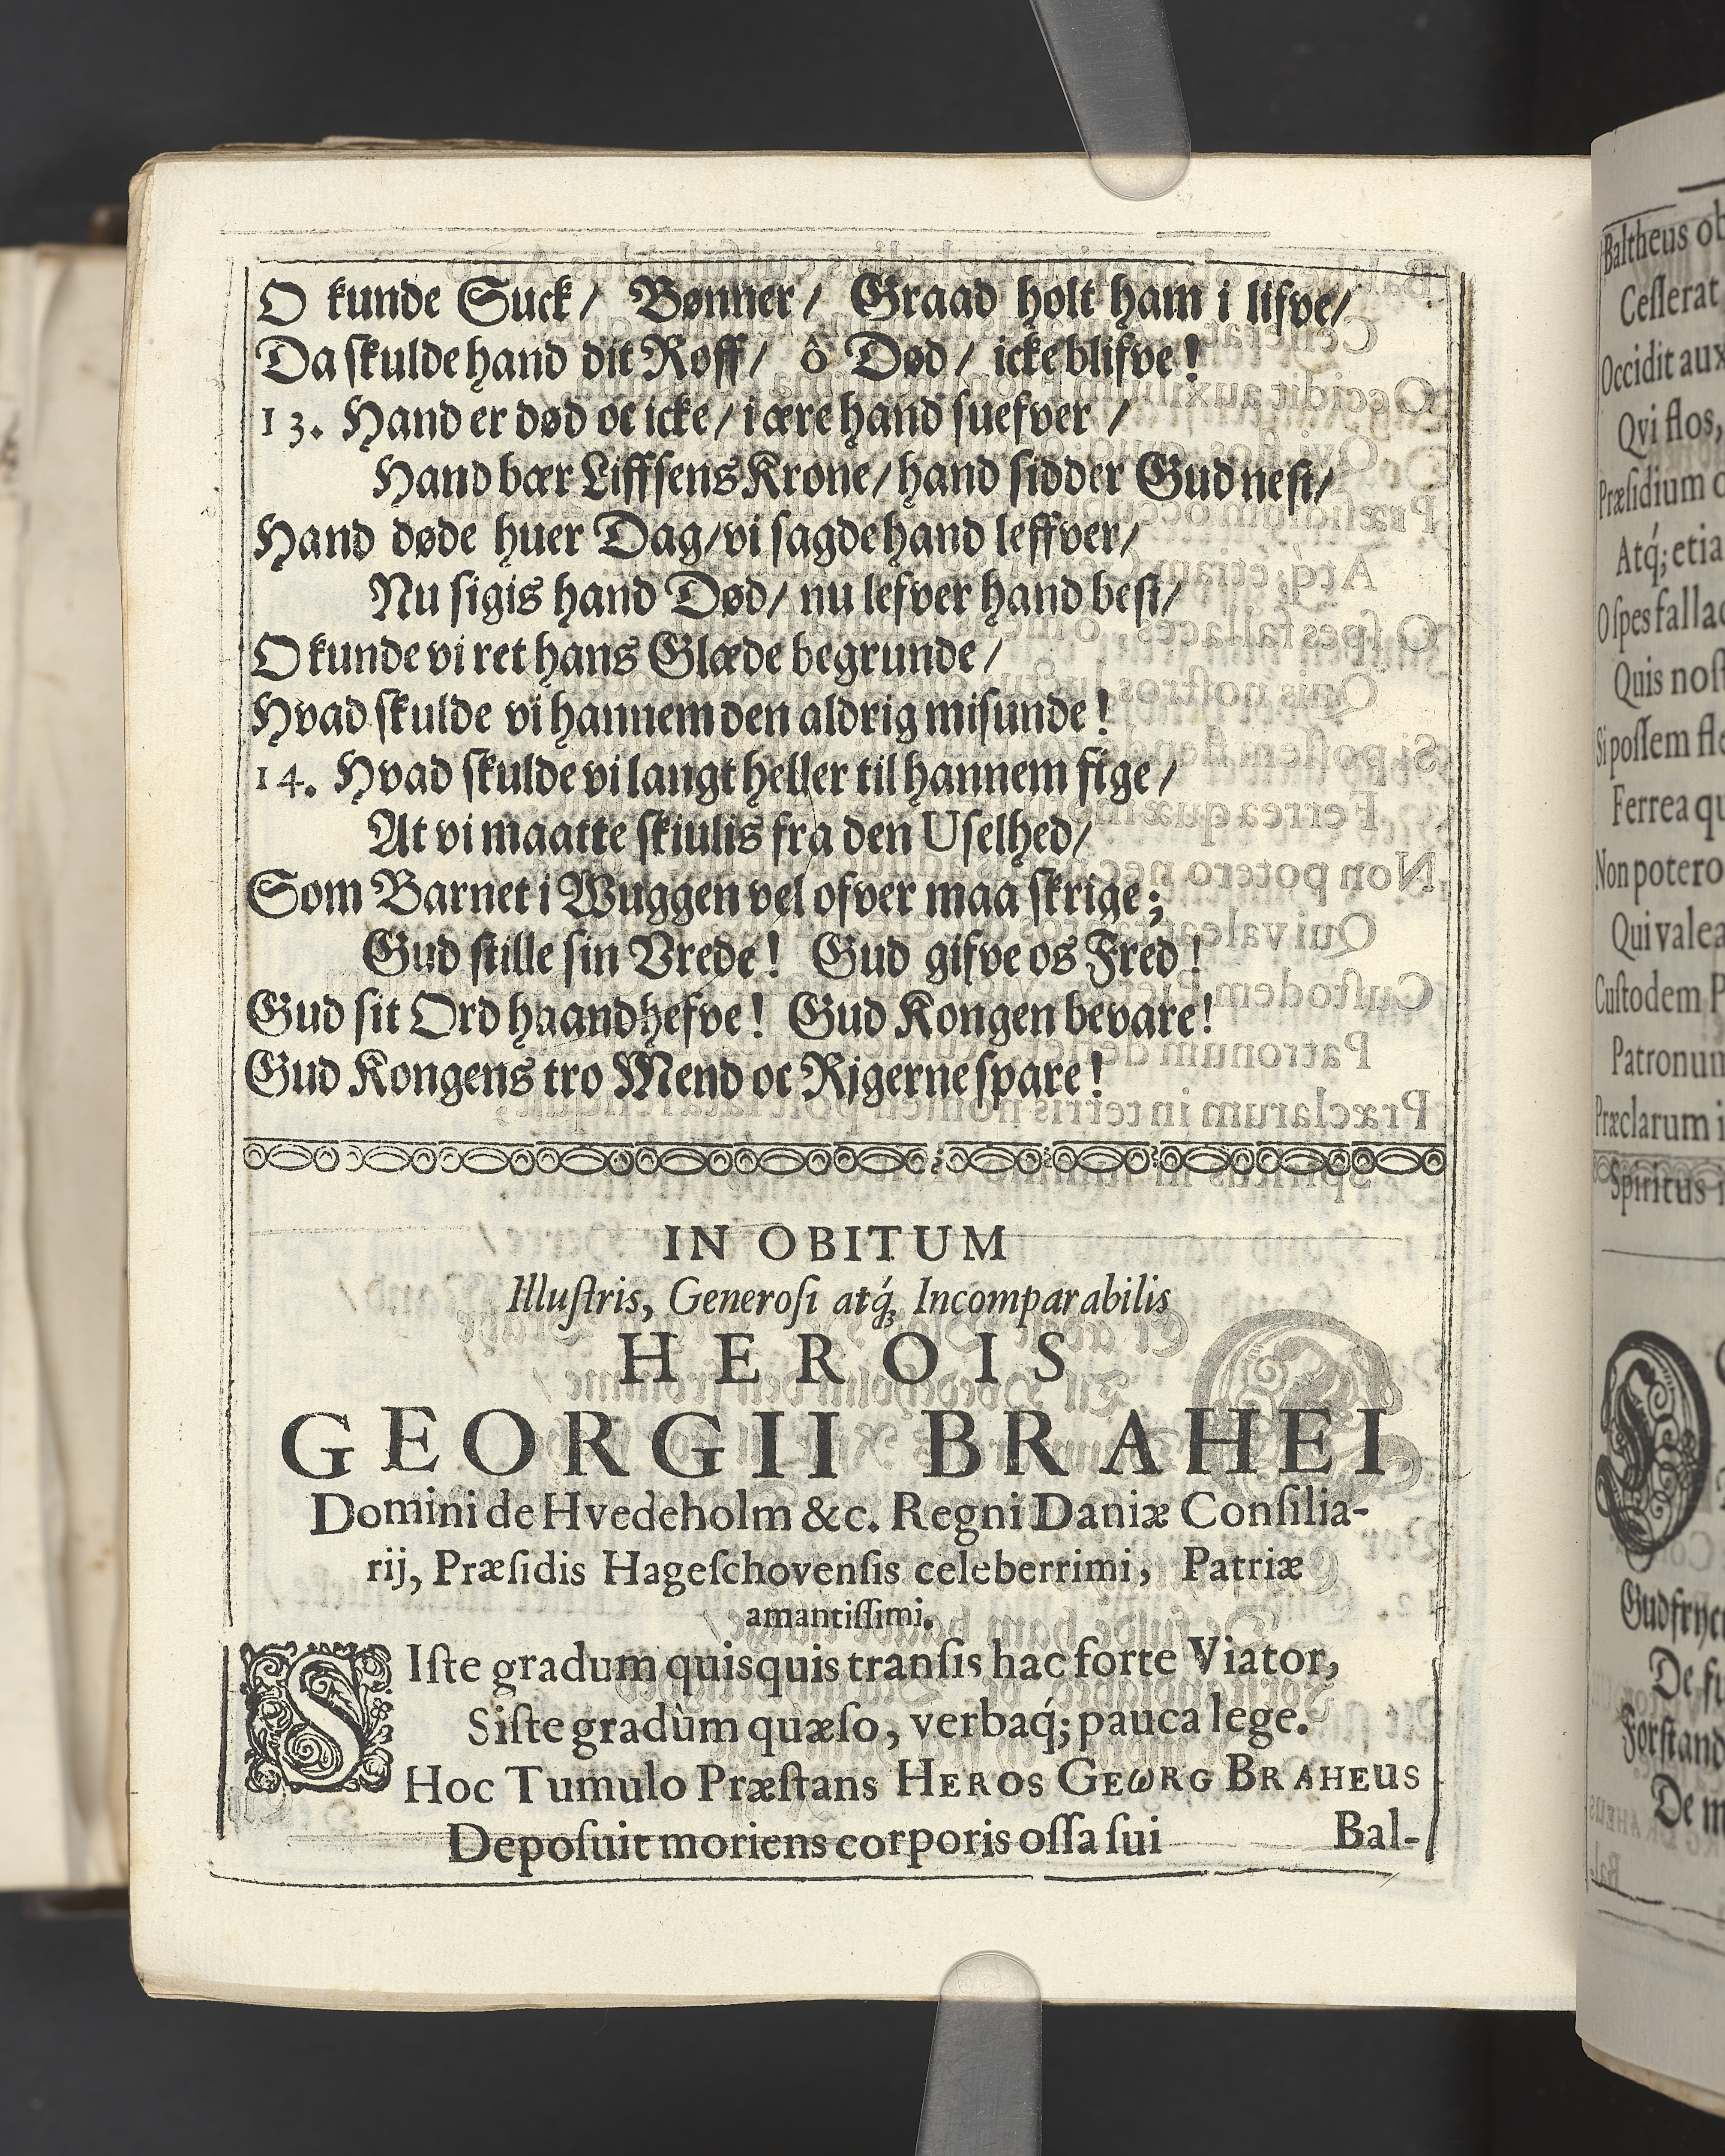 O kunde Suck/ Bønner/ Graad holt ham i lifve/
Da skulde hand dit Roff/ ô Død/ icke blifve!
13. Hand er død oc icke/ i ære hand suefver/
Hand bær Liffsens Krone/ hand sidder Gud nest/
Hand døde huer Dag/ vi sagde hand leffver/
Nu sigis hand Død/ nu lefver hand best/
O kunde vi ret hans Glæde begrunde/
Hvad skulde vi hannem den aldrig misunde!
14. Hvad skulde vi langt heller til hannem fige/
At vi maatte skiulis fra den Uselhed/
Som Barnet i Wuggen vel ofver maa skrige;
Gud stille sin Vrede! Gud gifve os Fred!
Gud sit Ord haandhefve! Gud Kongen bevare!
Gud Kongens tro Mend oc Rigerne spare!
IN OBITUM
Illuſtris, Generoſi atq́; Incomparabilis
HEROIS
GEORGII BRAHEI
Domini de Hvedeholm &c. Regni Daniæ Conſilia-
rij, Præſidis Hageſchovenſis celeberrimi, Patriæ
amantiſſimi.
SIſte gradum quisquis tranſis hac forte Viator,
Siſte gradùm quæſo, verbaq́; pauca lege.
Hoc Tumulo Præſtans HEROS GEωRG BRAHEUS
Depoſuit moriens corporis oſſa ſui
Bal-
Baltheus ob
Ceſſerat
Occidit aux
Qvi flos,
Præſidium o
Atq́; etia
O ſpes fallac
Quis noſt
Si poſſem fle
Ferrea qu
Non potero
Qui valea
Cuſtodem P
Patronum
Præclarum i
Spiritus i